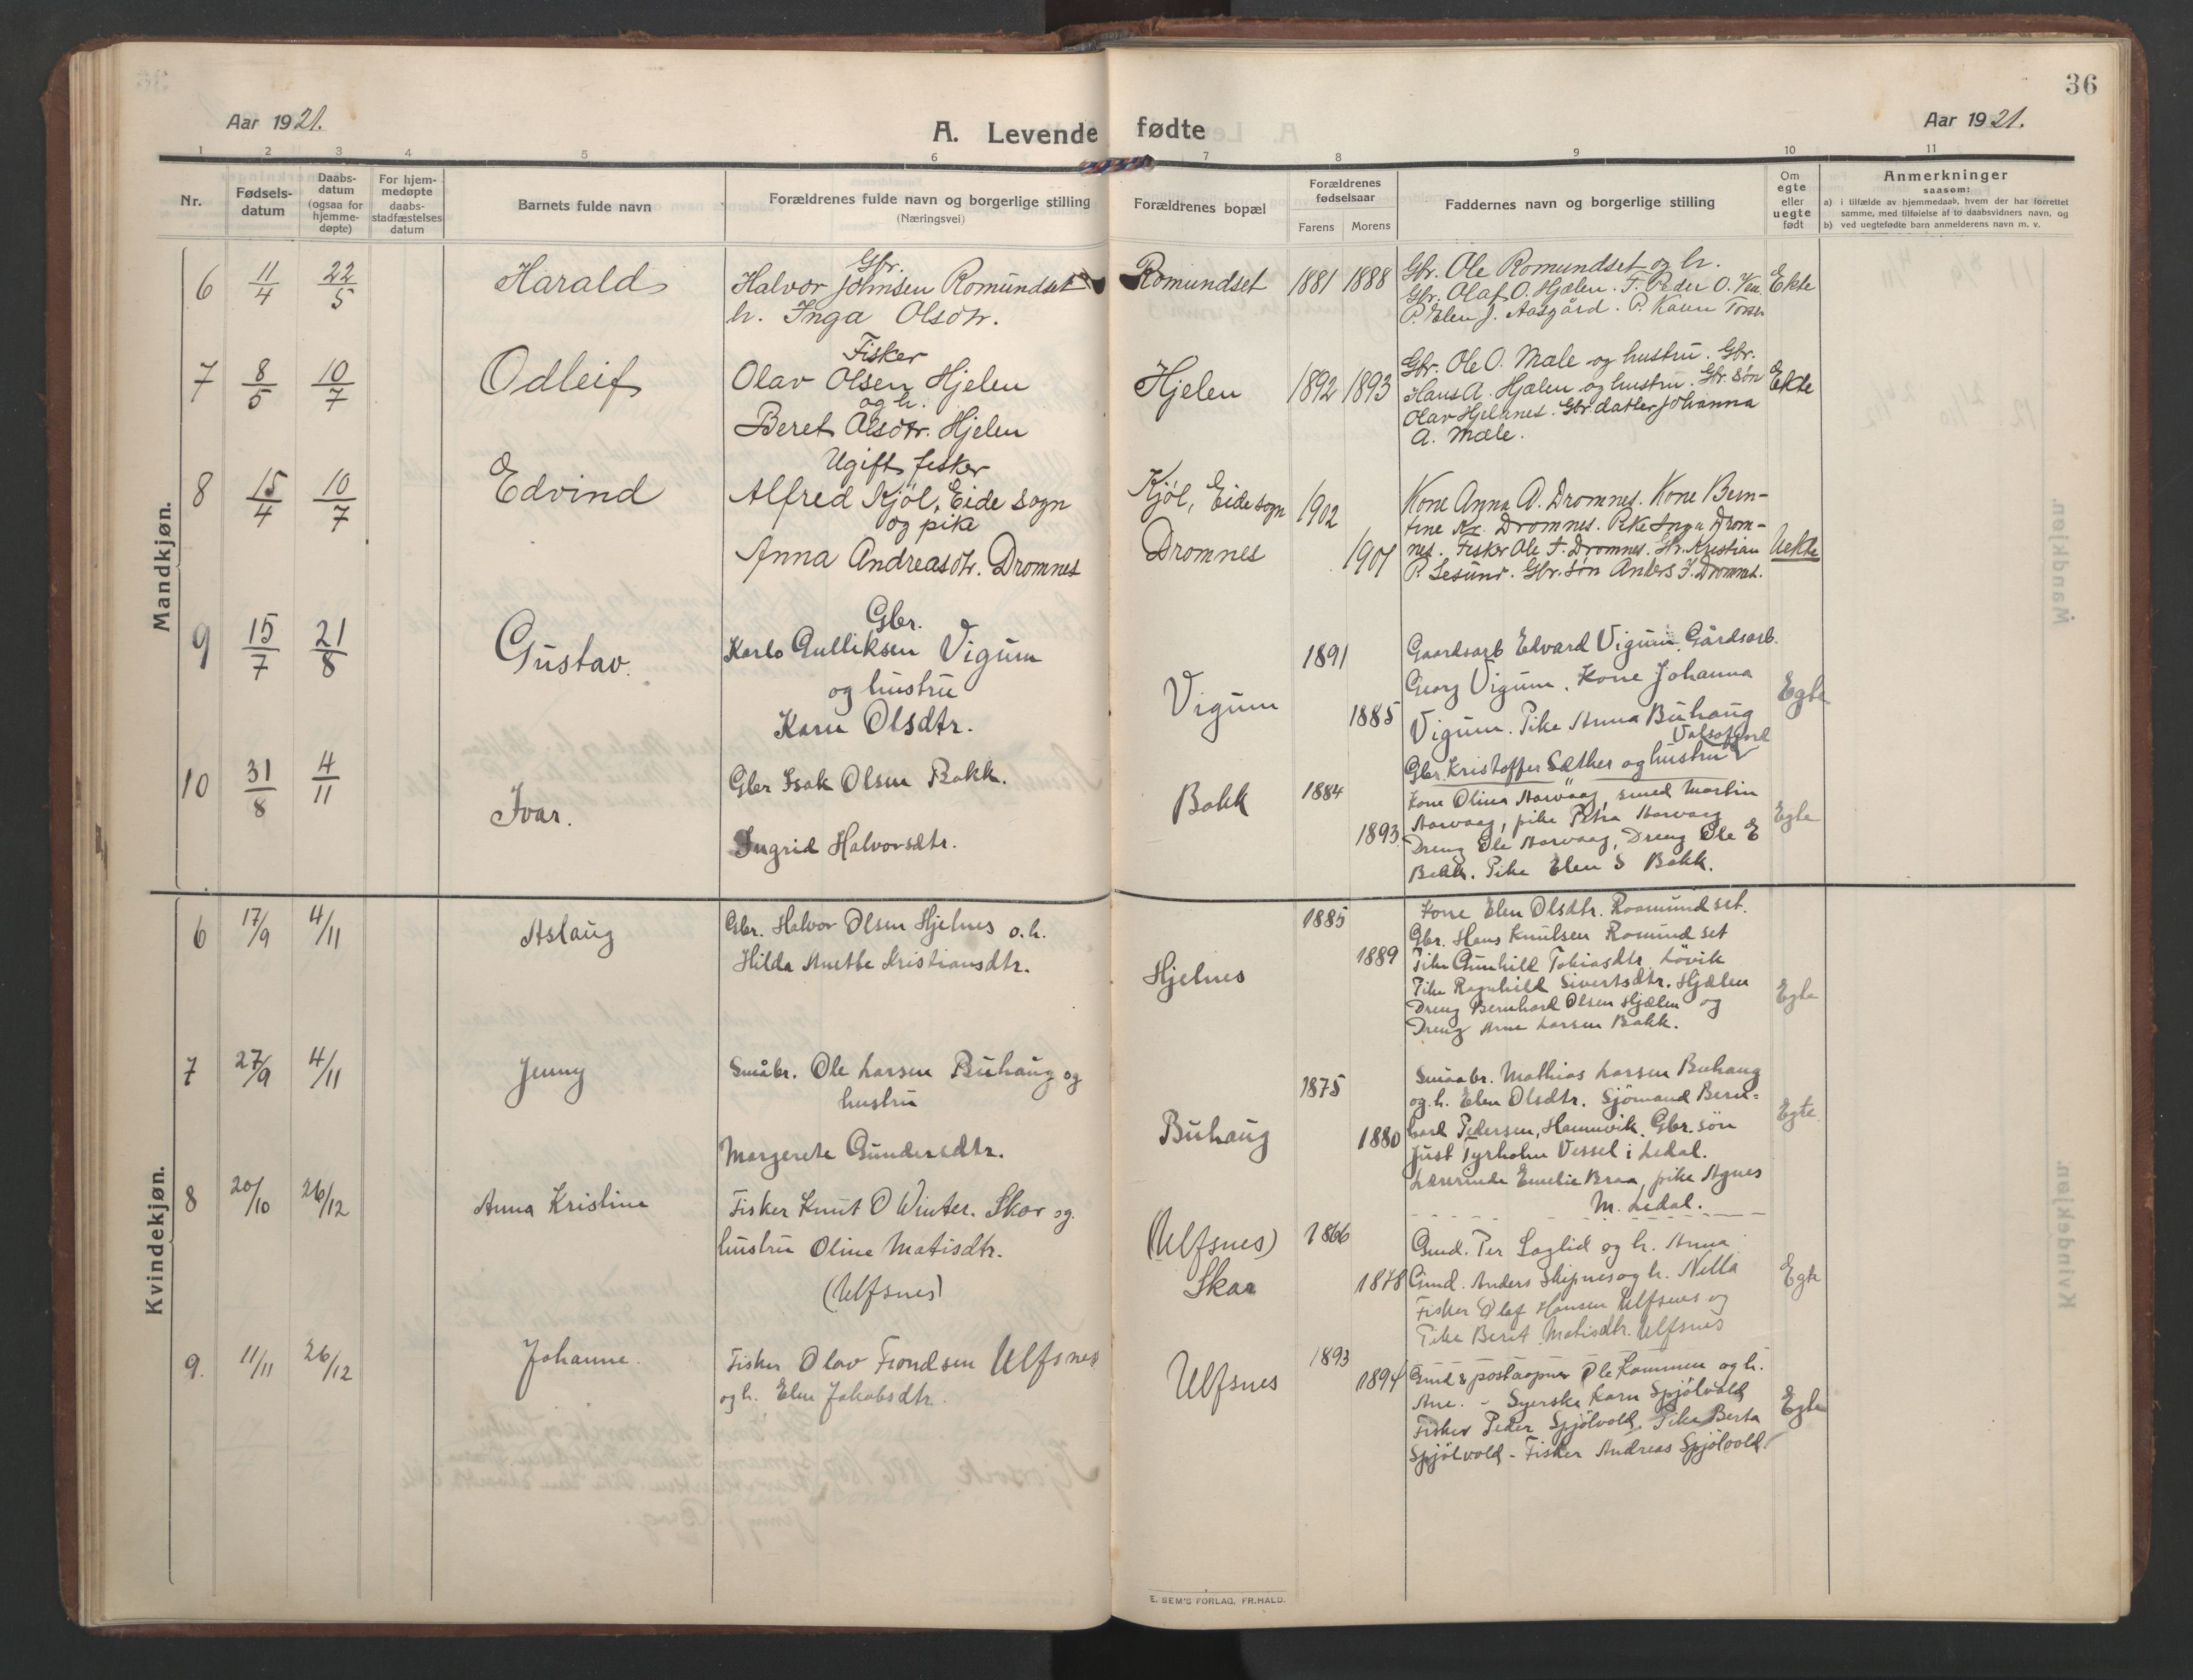 36
Aar 1921.
A. Levende fødte
Aar 1921.
1 2 3 4 5 6 7 8 9 10 11
Nr.
Fødsels-
datum
Daabs-
datum
(ogsaa for
hjemme-
døpte)
For hjem-
medøpte
daabs-
stadfæstelses
datum
Barnets fulde navn
Forældrenes fulde navn og borgerlige stilling
(Næringsvei)
Forældrenes bopæl
Forældrenes
fødselsaar
Farens Morens
Faddernes navn og borgerlige stilling
Om
egte
eller
uegte
født
Anmerkninger
saasom:
a) i tilfælde av hjemmedaab, hvem der har forrettet
samme, med tilføielse af to daabsvidners navn, og
b) ved uegtefødte barn anmelderens navn m. v.
Mandkjøn.
6 11/4 22/5 Harald
Gbr.
Halvor Johnsen Romundset
h. Inga Olsdtr.
Romundset 1881 1888
Gbr. Ole Romundset og h.
Gbr. Olaf O. Hjælen. F. Peder O.
P. Elen J. Aasgård. P. Karen
Ekte
7 8/5 10/7 Odleif
Fisker
Olav Olsen Hjelen
og h.
Beret Olsdtr. Hjelen
Hjelen 1892 1893
Gbr. Ole O. Mæle og hustru. Gbr.
Hans A. Hjælen og hustru. Gbr. søn
Olav Hjelnes. Gbr. datter Johanna
A. Mæle.
Ekte
8 15/4 10/7 Edvind
Ugift fisker
Alfred Kjöl, Eide sogn
og pike
Anna Andreasdtr. Dromnes
Kjöl, Eide sogn 1902
Dromnes 1901
Kone Anna A. Dromnes. Kone Bern-
tine Kr. Dromnes. Pike Inga Drom-
nes. Fisker Ole F. Dromnes. Gbr. Kristian
P. Lesund. Gbr. søn Anders J. Dromnes.
Uekte
9 15/7 21/8 Gustav.
Gbr.
Karlo Gulliksen Vigum
og hustru
Karen Olsdtr.
Vigum 1891
1885
Gaardsarb Edvard Vigum. Gårdsarb.
Georg Vigum. Kone Johanna
Vigum. Pike Anna Buhaug
Valsøfjord
Gbr. Kristoffer Sæther og hustru
Egte
10 31/8 4/11 Ivar.
Gbr Isak Olsen Bakk.
Ingrid Halvorsdtr.
Bakk 1884
1893
Kone Olina Aarvaag, smed Martin
Aarvaag, pike Petra Aarvaag
Dreng Ole Aarvaag, Dreng Ole E
Bakk. Pike Elen S Bakk.
Egte
Kvindekjøn.
6 17/9 4/11 Aslaug
Gbr. Halvor Olsen Hjelnes o.h.
Hilda Anette Kristiansdtr.
Hjelnes 1885
1889
Kone Elen Olsdtr. Roamundset.
Gbr. Hans Knutsen Romundset
Pike Gunhild Tobiasdtr. Lövik
Pike Ragnhild Sivertsdtr. Hjælen
Dreng Bernhard Olsen Hjælen og
Dreng Arne Larsen Bakk.
Egte
7 27/9 4/11 Jenny
Småbr. Ole Larsen Buhaug og
hustru
Margrete Gundersdtr.
Buhaug 1875
1880
Smaabr. Mathias Larsen Buhaug
og h. Elen Olsdtr. Sjömand Bern-
hard Pedersen, Hamnvik. Gbr. sön
Just Tyrholm Vessel i Ledal.
Lærerinde Emelie Braa, pike Agnes
M. Ledal.
Egte
8 20/10 26/12 Anna Kristine
Fisker Knut O Winter. Skar og
hustru Oline Matisdtr.
(Ulfsnes)
(Ulfsnes) 1866
Skar 1878
Gmd. Per Saglid og h. Anna
Gmd. Anders Skipnes og h. Nella
Fisker Olaf Hansen Ulfsnes og
Pike Beret Matisdtr. Ulfsnes
Egte
9. 11/11 26/12 Johanne.
Fisker Olav Trondsen Ulfsnes
og h. Elen Jakobsdtr.
Ulfsnes 1893
1894
Gmd & postaapner Ole Kammen og h.
Ane. - Syerske Karn Spjölvold
Fisker Peder Spjölvold. Pike Berta
Spjölvold - Fisker Andreas Spjölvold
Egte
E. SEM'S FORLAG, FR.HALD.